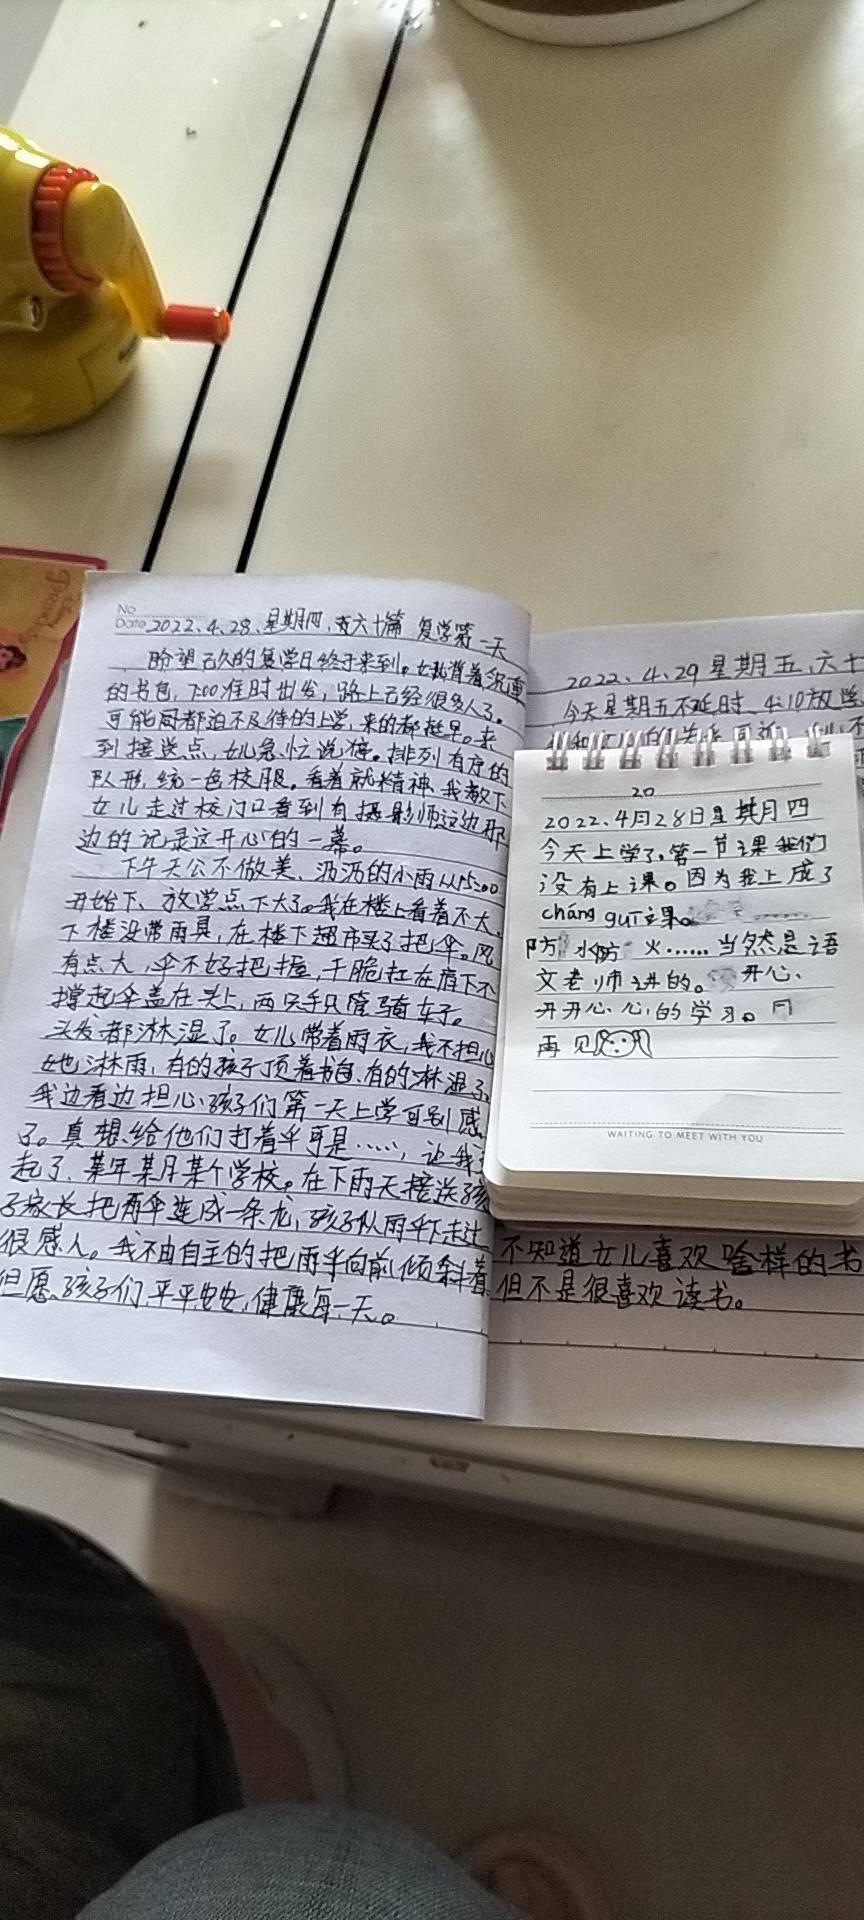 No
Date 2022.4.28.星期四.第六十篇 复学第一天
盼望已久的复学日终于来到。女儿背着沉重
的书包,7:00准时出发,路上已经很多人了。
可能同都迫不及待的上学,来的都挺早。来
到接送点,女儿急忙说停。排列有序的
队形,统一色校服。看着就精神,我数下
女儿走过校门口看到有摄影师这边那
边的记录这开心的一幕。
下午天公不做美、沥沥的小雨从15:00
开始下、放学点下大了。我在楼上看着不大,
下楼没带雨具,在楼下超市买了把伞。风
有点大,伞不好把握,干脆扛在肩下不
撑起伞盖在头上,两只手只管骑车了。
头发都淋湿了。女儿带着雨衣,我不担心
她淋雨,有的孩子顶着书包,有的淋湿了,
我边看边担心,孩子们第一天上学可别感
了。真想给他们打着伞可是……,让我
起了,某年某月某个学校。在下雨天接送孩
子家长把雨伞连成一条龙,孩子从雨伞下走过
很感人。我不由自主的把雨伞向前倾斜着
但愿孩子们,平平安安,健康每一天。
2022、4、29星期五、六十
今天星期五不延时、4:10放学
不知道女儿喜欢啥样的书
但不是很喜欢读书。
20
2022、4月28日星期四
今天上学了,第一节课我们
没有上课。因为我上成了
cháng guī课。……
防 水防 火……当然是语
文老师讲的。 开心、
开开心心的学习。
再见
WAITING TO MEET WITH YOU